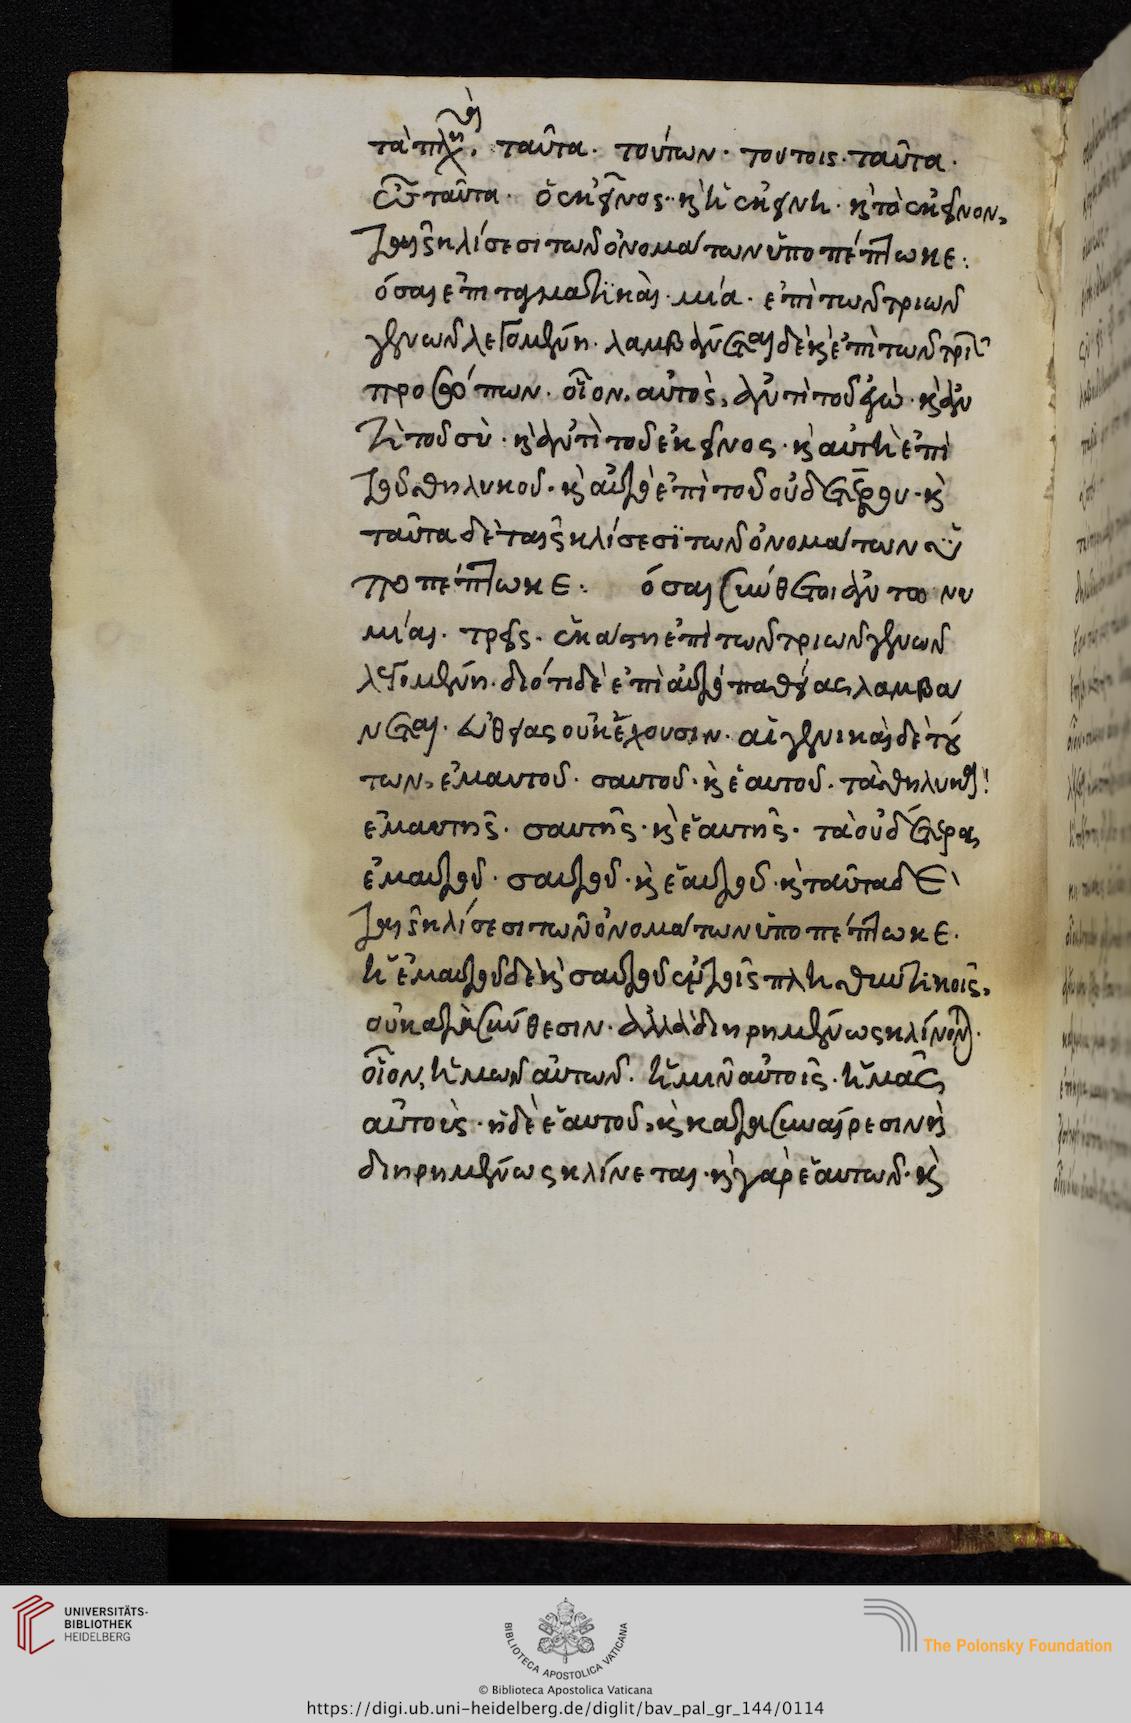 τὰ πλη. ταῦτα. τούτων. τούτοις. ταῦτα.
ὦ ταῦτα. ὁ ἐκεῖνος. κỳ ἡ ἐκείνη. κỳ τὸ ἐκεῖνον,
ταῖς κλίσεσι τῶν ὀνομάτων ὑποπέπτωκε:
ὅσαι ἐπιταγματικαὶ. μία. ἐπὶ τῶν τριῶν
γενῶν λεγομένη. λαμβάνεται δὲ κỳ ἐπὶ τῶν τριῶν
προσώπων. οἷον, αὐτὸς, ἀντὶ τοῦ ἐγὼ. κỳ ἀν
τὶ τοῦ σὺ. κỳ ἀντὶ τοῦ ἐκεῖνος. κỳ αὐτὴ ἐπὶ
τοῦ θηλυκοῦ. κỳ αὐτὸ ἐπὶ τοῦ οὐδετέρου. κỳ
ταῦτα δὲ ταῖς κλίσεσϊ τῶν ὀνομάτων ὑ
ποπέπτωκε: ὅσαι σύνθετοι ἀντωνυ
μίαι. τρεῖς. ἑκάστη ἐπὶ τῶν τριῶν γενῶν
λεγομένη. διότι δὲ ἐπὶ αὐτοπαθείας λαμβά
νεται. εὐθείας οὐκ ἔχουσιν. αἱ γενικαὶ δὲ τού
των, ἐμαυτοῦ. σαυτοῦ. κỳ ἑαυτοῦ. τὰ θηλυκὰ
ἐμαυτῆς. σαυτῆς. κỳ ἑαυτῆς. τὰ οὐδέτερα,
ἐμαυτοῦ. σαυτοῦ. κỳ ἑαυτοῦ. κỳ ταῦτα δὲ
ταῖς κλίσεσι τῶν ὀνομάτων ὑποπέπτωκε.
ἡ ἐμαυτοῦ δὲ κỳ σαυτοῦ ἐν τοῖς πληθυντικοῖς,
οὐ κατὰ σύνθεσιν. ἀλλὰ διῃρημένως κλίνονται.
οἷον, ἡμῶν αὐτῶν. ἡμῖν αὐτοῖς. ἡμᾶς
αὐτοὺς. ἡ δὲ ἑαυτοῦ, κỳ κατὰ συναίρεσιν κỳ
διῃρημένως κλίνεται. κỳ γὰρ ἑαυτῶν. κỳ
UNIVERSITÄTS-
BIBLIOTHEK
HEIDELBERG
BIBLIOTECA APOSTOLICA VATICANA
The Polonsky Foundation
© Biblioteca Apostolica Vaticana
https://digi.ub.uni-heidelberg.de/diglit/bav_pal_gr_144/0114